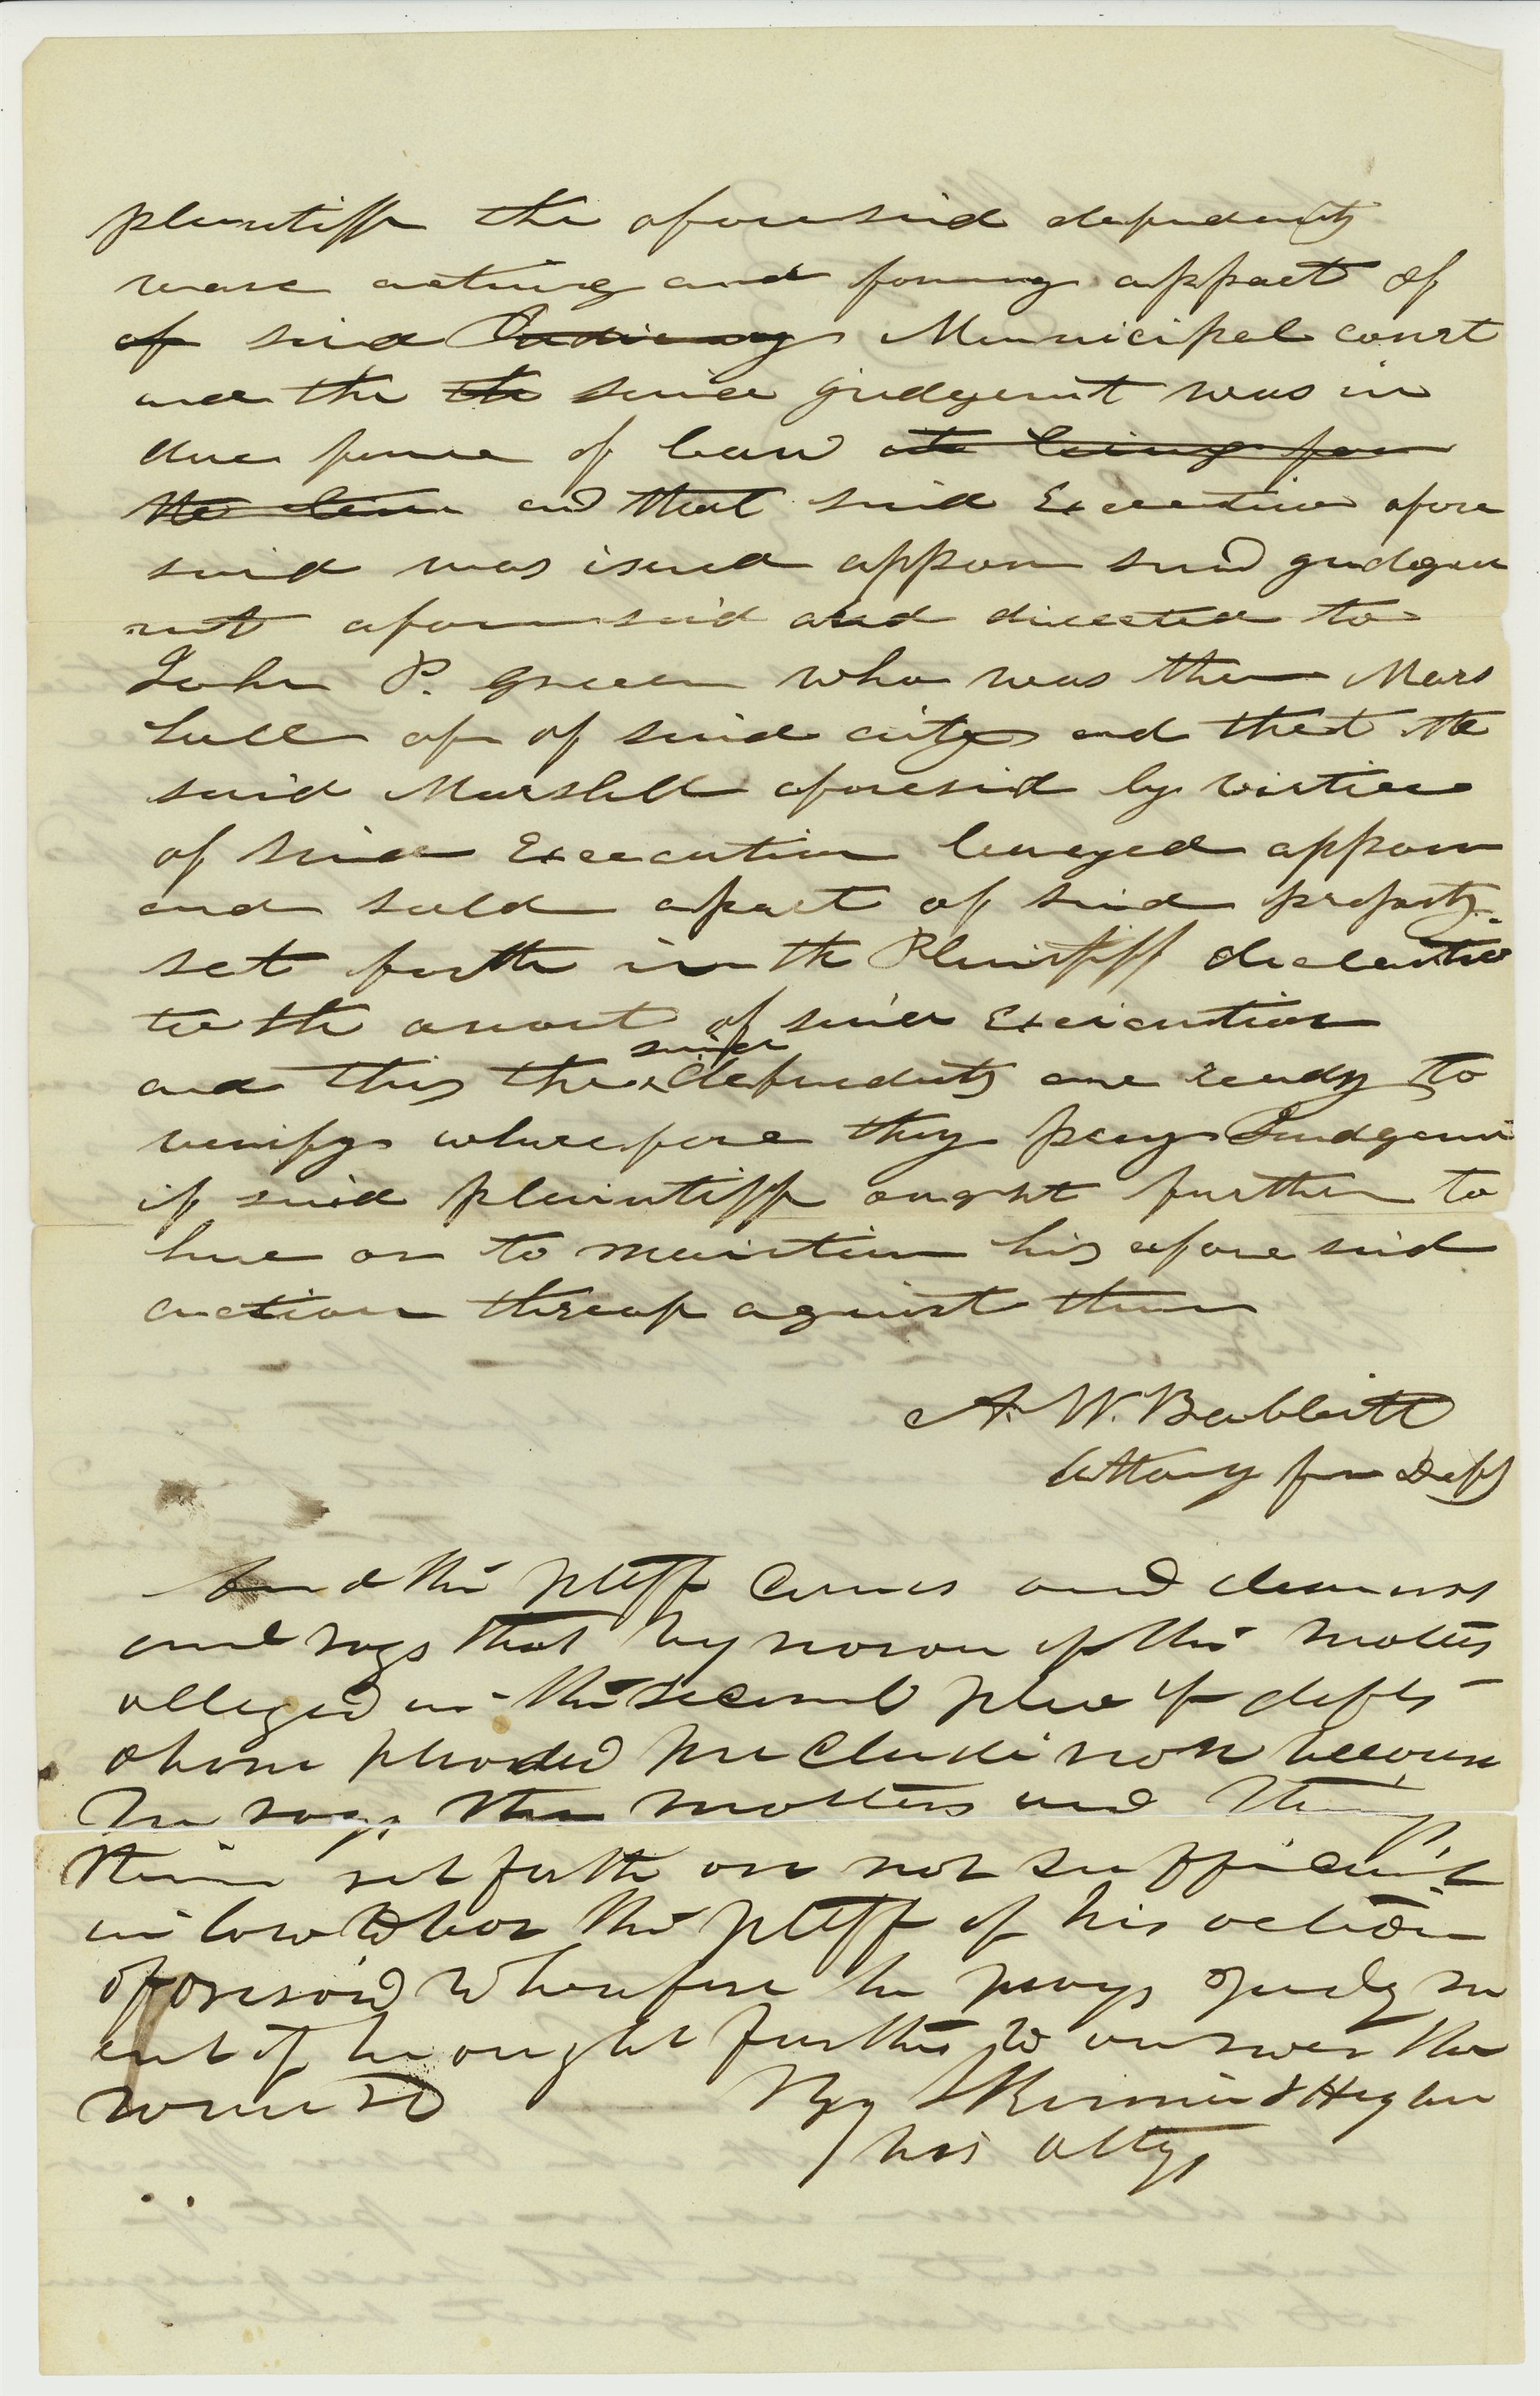 plaintiff the aforesaid defendents
ware acting and forming appart of
of said Judicary Municipal court
and the the said judgemt was in
due force of law ate being for
the time and that said Execution afore
said was isued appon said gudgem
ent aforesaid and directed to
John P. Green who was then Mars
hall of of said city and that the
said Marshall aforesaid by virtiue
of said Execcution leveyed appon
and sold apart of said property
set forth in the Plaintiff declaration
to the amount of said Execution
and this the said defendents are ready to
verify wharefore they pray Judgem
if said plaintiff ought further to
have or to maintain his afore said
acction thereof against them
A. W. Babbitt
Attorny for Defts
And the pltff comes and demurs
and says that by reason of the matters
alleged in the second plea of defts
above pleaded precludi non because
he says the matters and things
therein set forth are not sufficient
in law to bar the pltff of his action
aforesaid Wherefore he prays Judgm
ent if he ought further to answer the
same &c
By Skinner & Higbee
his attys